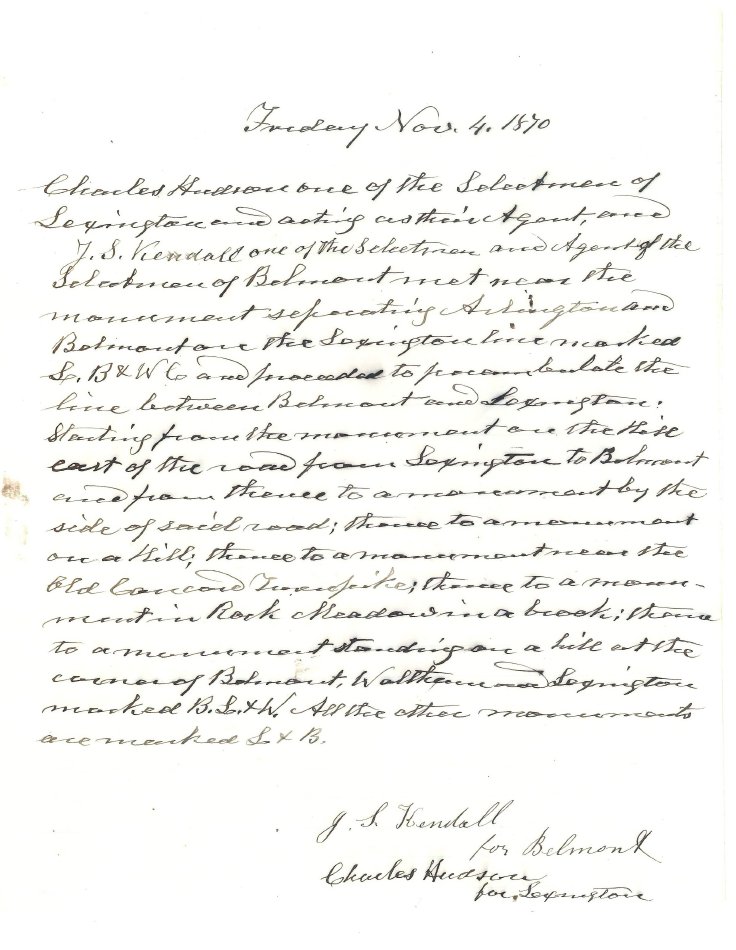 Friday Nov. 4. 1870
Charles Hudson one of the Selectmen of
Lexington and acting as their Agent, and
J. S. Kendall one of the Selectmen and Agent of the
Selectmen of Belmont met near the
monument separating Arlington and
Belmont on the Lexington line marked
L. B & W C and proceeded to perambulate the
line between Belmont and Lexington:
Starting from the monument on the Hill
east of the road from Lexington to Belmont
and from thence to a monument by the
side of said road; thence to a monument
on a Hill; thence to a monument near the
Old Concord Turnpike; thence to a monu-
ment in Rock Meadow in a brook; thence
to a monument standing on a hill at the
corner of Belmont, Waltham and Lexington
marked B. L. & W. All the other monuments
are marked L & B.
J. S. Kendall
for Belmont
Charles Hudson
for Lexington